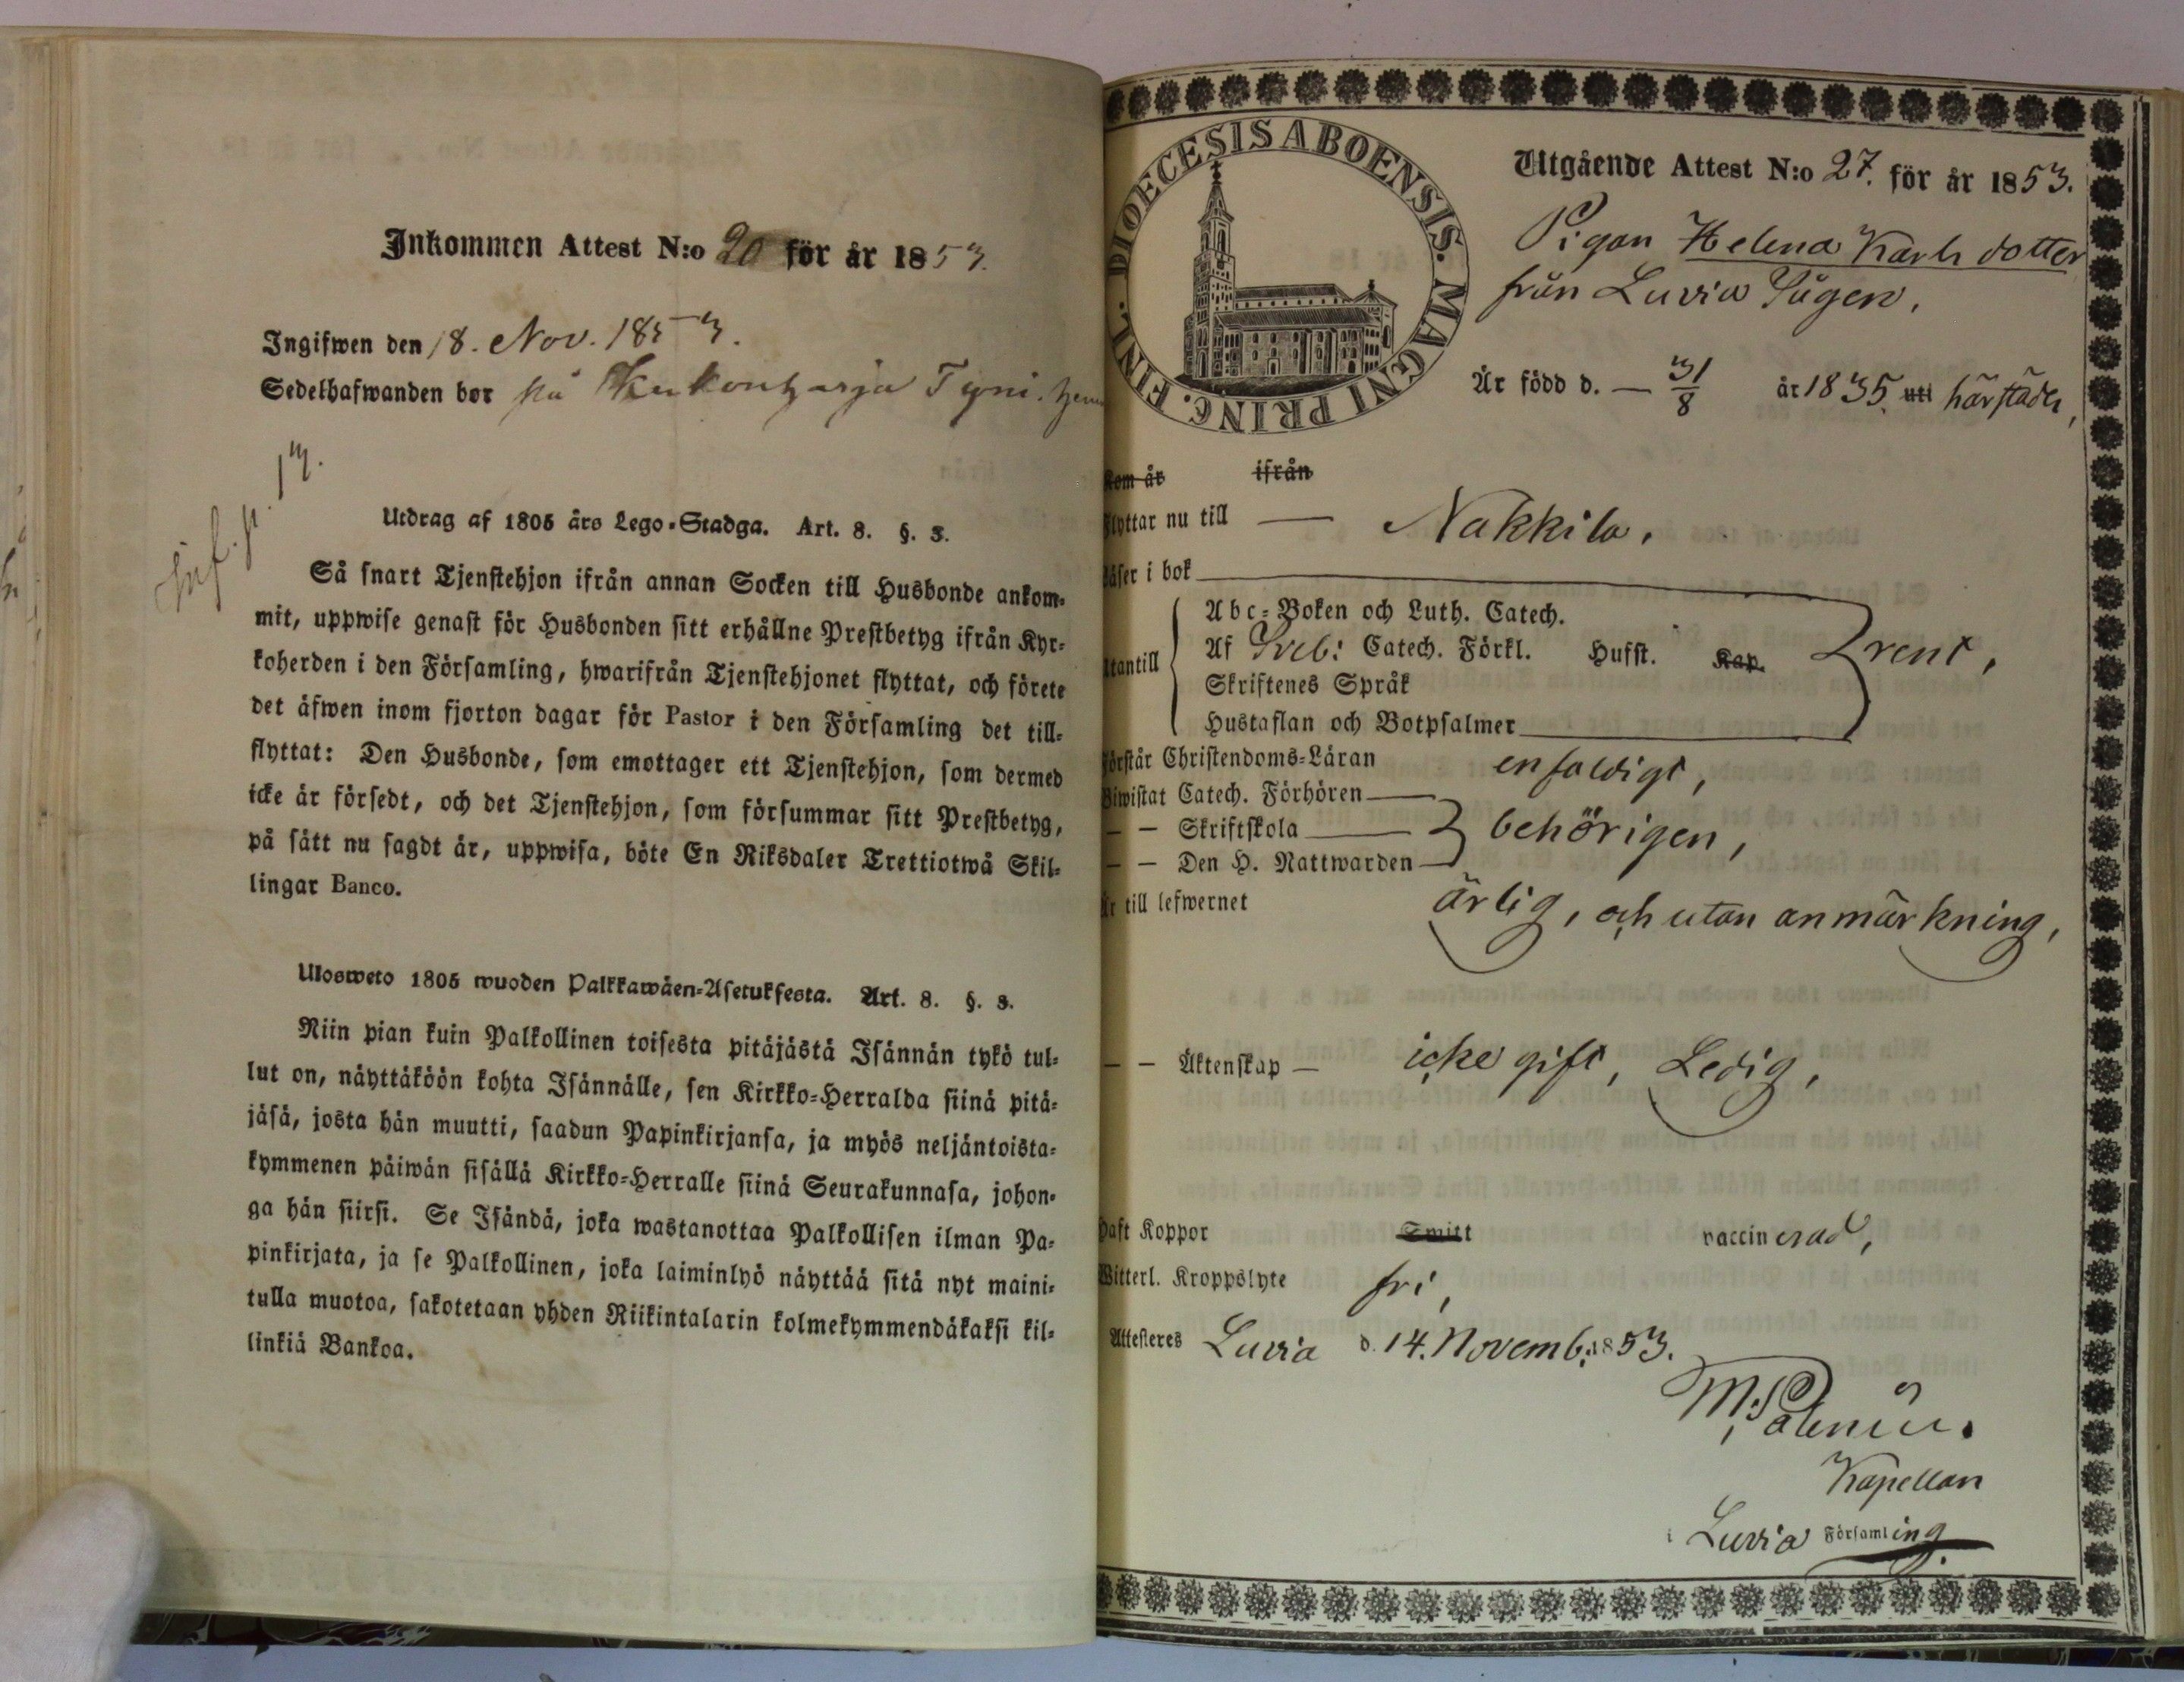 Inkommen Attest N:o 20 för år 1853.
Ingifwen den 18. Nov. 1853.
Sedelhafwanden bor på Tyni
inf. p. 13.
Utdrag af 1805 års Lego-Stadga. Art. 8. §. 3.
Så snart Tjenstehjon ifrån annan Socken till Husbonde ankom-
mit, uppwise genast för Husbonden sitt erhållne Prestbetyg ifrån Kyr-
koherden i den Församling, hwarifrån Tjenstehjonet flyttat, och förete
det äfwen inom fjorton dagar för Pastor i den Församling det till-
flyttat: Den Husbonde, som emottager ett Tjenstehjon, som dermed
icke är försedt, och det Tjenstehjon, som försummar sitt Prestbetyg,
på sätt nu sagdt är, uppwisa, böte En Riksdaler Trettiotwå Skil-
lingar Banco.
Ulosweto 1805 wuoden Palkkawäen-Asetuksesta. Art. 8. §. 3.
Niin pian kuin Palkollinen toisesta pitäjästä Isännän tykö tul-
lut on, näyttäköön kohta Isännälle, sen Kirkko-Herralda siinä pitä-
jäsä, josta hän muutti, saadun Papinkirjansa, ja myös neljäntoista-
kymmenen päiwän sisällä Kirkko-Herralle siinä Seurakunnasa, johon-
ga hän siirsi. Se Isändä, joka wastanottaa Palkollisen ilman Pa-
pinkirjata, ja se Palkollinen, joka laiminlyö näyttää sitä nyt maini-
tulla muotoa, sakotetaan yhden Riikintalarin kolmekymmendäkaksi kil-
linkiä Bankoa.
DIOECESIS ABOENSIS. MAGNI PRINC. FINL.
Utgående Attest N:o 27. för år 1853.
Pigan Helena Karlsdotter
från Luvia
Är född d. — 31/8 år 1835. uti härstädes,
Kom år ifrån
Flyttar nu till — Nakkila,
Läser i bok
Utantill
Abc-Boken och Luth. Catech.
Af Sveb: Catech. Förkl. Husst. Kap. rent,
Skriftenes Språk
Hustaflan och Botpsalmer
Förstår Christendoms-Läran enfaldigt,
Biwistat Catech. Förhören
— — Skriftskola behörigen,
— — Den H. Nattwarden
Är till lefwernet ärlig, och utan anmärkning,
— — Äktenskap — icke gift, Ledig,
Haft Koppor Smitt vaccinerad,
Witterl. Kroppslyte fri,
Attesteras Luvia d. 14. Novemb: 1853.
Kapellan
i Luvia Församling.